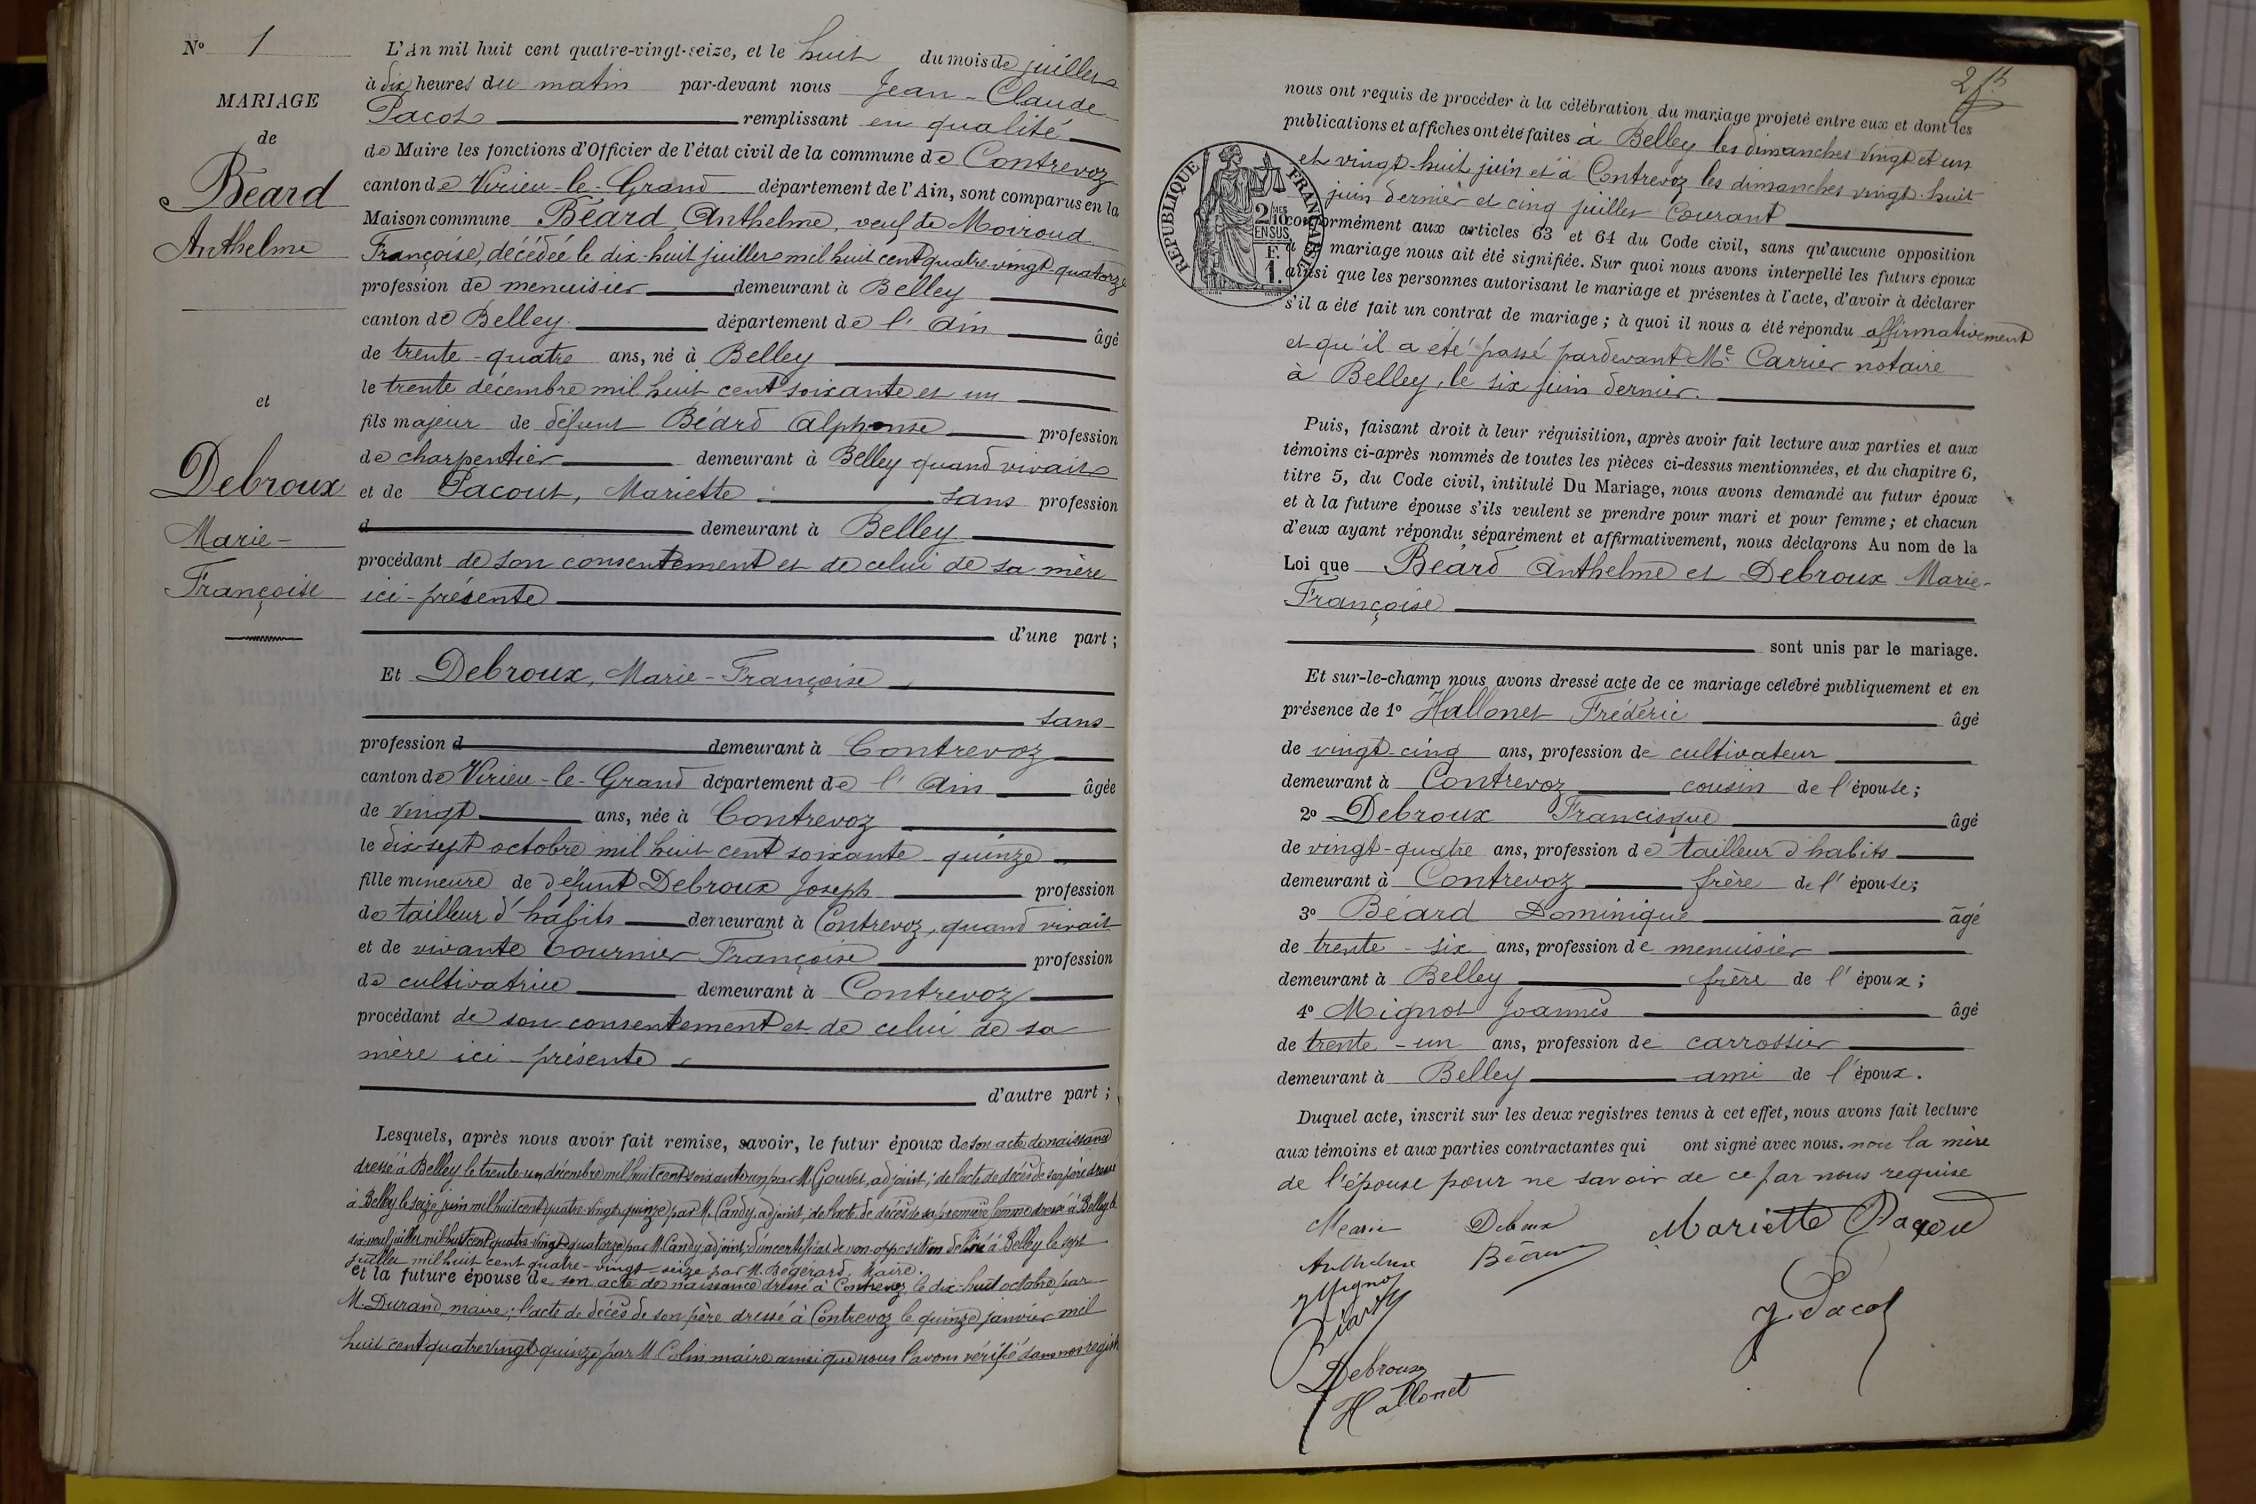 N° 1
MARIAGE
de
Béard
Anthelme
et
Debroux
Marie-
Françoise
L'An mil huit cent quatre-vingt-seize, et le huit du mois de juillet
à dix heures du matin par-devant nous Jean-Claude
Pacot remplissant en qualité
de Maire les fonctions d'Officier de l'état civil de la commune de Contrevoz
canton de Virieu-le-Grand département de l'Ain, sont comparus en la
Maison commune Béard Anthelme, veuf de Moiroud
Françoise, décédée le dix-huit juillet mil huit cent quatre-vingt-quatorze
profession de menuisier demeurant à Belley
canton de Belley département de l'Ain âgé
de trente-quatre ans, né à Belley
le trente décembre mil huit cent soixante et un
fils majeur de défunt Béard Alphonse profession
de charpentier demeurant à Belley quand vivait
et de Pacout, Mariette sans profession
d demeurant à Belley
procédant de son consentement et de celui de sa mère
ici-présente
d'une part ;
Et Debroux, Marie-Françoise
sans
profession d demeurant à Contrevoz
canton de Virieu-le-Grand département de l'Ain âgée
de vingt ans, née à Contrevoz
le dix-sept octobre mil huit cent soixante-quinze
fille mineure de défunt Debroux Joseph profession
de tailleur d'habits demeurant à Contrevoz, quand vivait
et de vivante Tournier Françoise profession
de cultivatrice demeurant à Contrevoz
procédant de son consentement et de celui de sa
mère ici-présente
d'autre part ;
Lesquels, après nous avoir fait remise, savoir, le futur époux de son acte de naissance
dressé à Belley le trente-un décembre mil huit cent soixante un par M. Gouvet, adjoint ; de l'acte de décès de son père dressé
à Belley le seize juin mil huit cent quatre-vingt quinze par M. Candy, adjoint ; de l'acte de décès de sa première femme dressé à Belley le
dix-neuf juillet mil huit cent quatre-vingt quatorze par M. Candy, adjoint ; d'un certificat de non-opposition délivré à Belley le sept
juillet mil huit cent quatre-vingt seize par M. Bégérard, Maire.
et la future épouse de son acte de naissance dressé à Contrevoz le dix-huit octobre par
M. Durand, maire ; l'acte de décès de son père dressé à Contrevoz le quinze janvier mil
huit cent quatre vingt quinze par M. Colin maire ainsi que nous l'avons vérifié dans nos regist
2
nous ont requis de procéder à la célébration du mariage projeté entre eux et dont les
publications et affiches ont été faites à Belley les dimanches vingt et un
et vingt-huit juin et à Contrevoz les dimanches vingt-huit
juin dernier et cinq juillet courant
conformément aux articles 63 et 64 du Code civil, sans qu'aucune opposition
à mariage nous ait été signifiée. Sur quoi nous avons interpellé les futurs époux
ainsi que les personnes autorisant le mariage et présentes à l'acte, d'avoir à déclarer
s'il a été fait un contrat de mariage ; à quoi il nous a été répondu affirmativement
et qu'il a été passé pardevant Me Carrier notaire
à Belley, le six juin dernier.
RÉPUBLIQUE FRANÇAISE
2/10 MES EN SUS
F. 1.
Puis, faisant droit à leur réquisition, après avoir fait lecture aux parties et aux
témoins ci-après nommés de toutes les pièces ci-dessus mentionnées, et du chapitre 6,
titre 5, du Code civil, intitulé Du Mariage, nous avons demandé au futur époux
et à la future épouse s'ils veulent se prendre pour mari et pour femme ; et chacun
d'eux ayant répondu séparément et affirmativement, nous déclarons Au nom de la
Loi que Béard Anthelme et Debroux Marie-
Françoise
sont unis par le mariage.
Et sur-le-champ nous avons dressé acte de ce mariage célébré publiquement et en
présence de 1° Hallonet Frédéric âgé
de vingt-cinq ans, profession de cultivateur
demeurant à Contrevoz cousin de l'épouse ;
2° Debroux Francisque âgé
de vingt-quatre ans, profession de tailleur d'habits
demeurant à Contrevoz frère de l'épouse ;
3° Béard Dominique âgé
de trente-six ans, profession de menuisier
demeurant à Belley frère de l'époux ;
4° Mignot Joannès âgé
de trente-un ans, profession de carrossier
demeurant à Belley ami de l'époux.
Duquel acte, inscrit sur les deux registres tenus à cet effet, nous avons fait lecture
aux témoins et aux parties contractantes qui ont signé avec nous. non la mère
de l'épouse pour ne savoir de ce par nous requise
Marie Debroux Mariette Pacou
Anthelme Béard
J Mignot
Béard
J. Pacot
Debroux
Hallonet